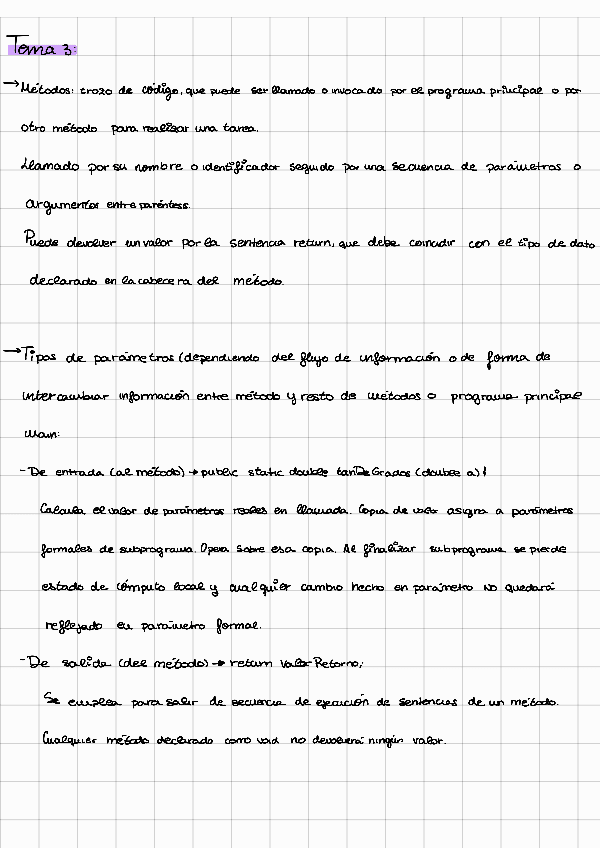 Tema 3:
→ Métodos: trozo de código, que puede ser llamado o invocado por el programa principal o por
otro método para realizar una tarea.
Llamado por su nombre o identificador seguido por una secuencia de parámetros o
argumentos entre paréntess.
Puede devolver un valor por la sentencia return, que debe coincidir con el tipo de dato
declarado en la cabecera del método.
→ Tipos de parámetros (dependiendo del flujo de información o de forma de
intercambiar información entre método y resto de métodos o programa principal
main:
- De entrada (al método) → public static double tanDeGrados (double a) {
Calcula el valor de parámetros reales en llamada. Copia de valor asigna a parámetros
formales de subprograma. Opera sobre esa copia. Al finalizar subprograma se pierde
estado de cómputo local y cualquier cambio hecho en parámetro no quedará
reflejado en parámetro formal.
- De salida (del método) → return valorRetorno;
Se emplea para salir de secuencia de ejecución de sentencias de un método.
Cualquier método declarado como void no devolverá ningún valor.